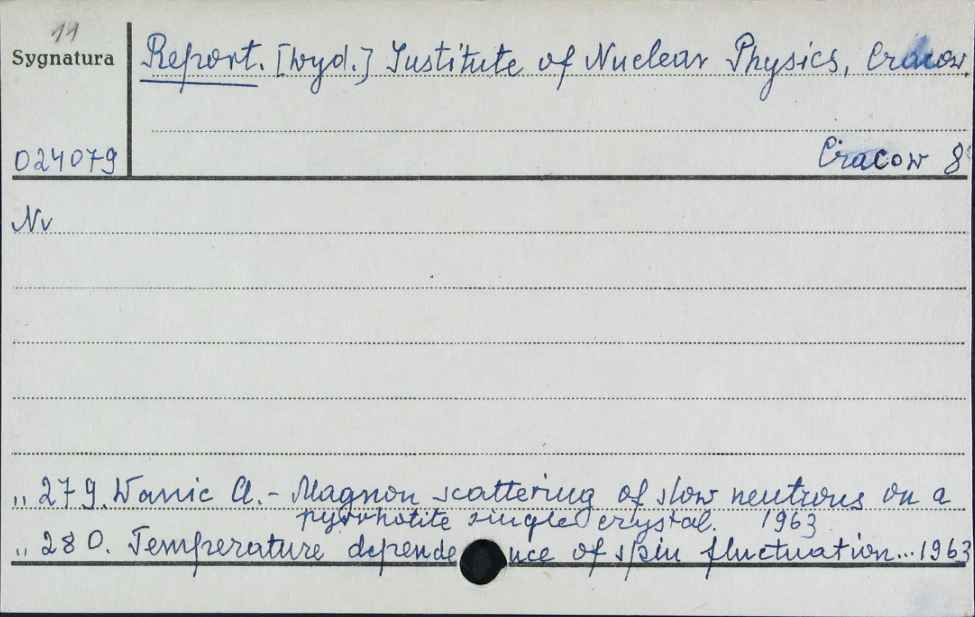 11
Sygnatura
Report. [wyd.] Institute of Nuclear Physics, Cracow,
024079
Cracow 8°
Nr
„ 279. Wanic A. - Magnon scattering of slow neutrons on a
pyrrhotite single crystal. 1963
„ 280. Temperature dependence of spin fluctuation... 1963